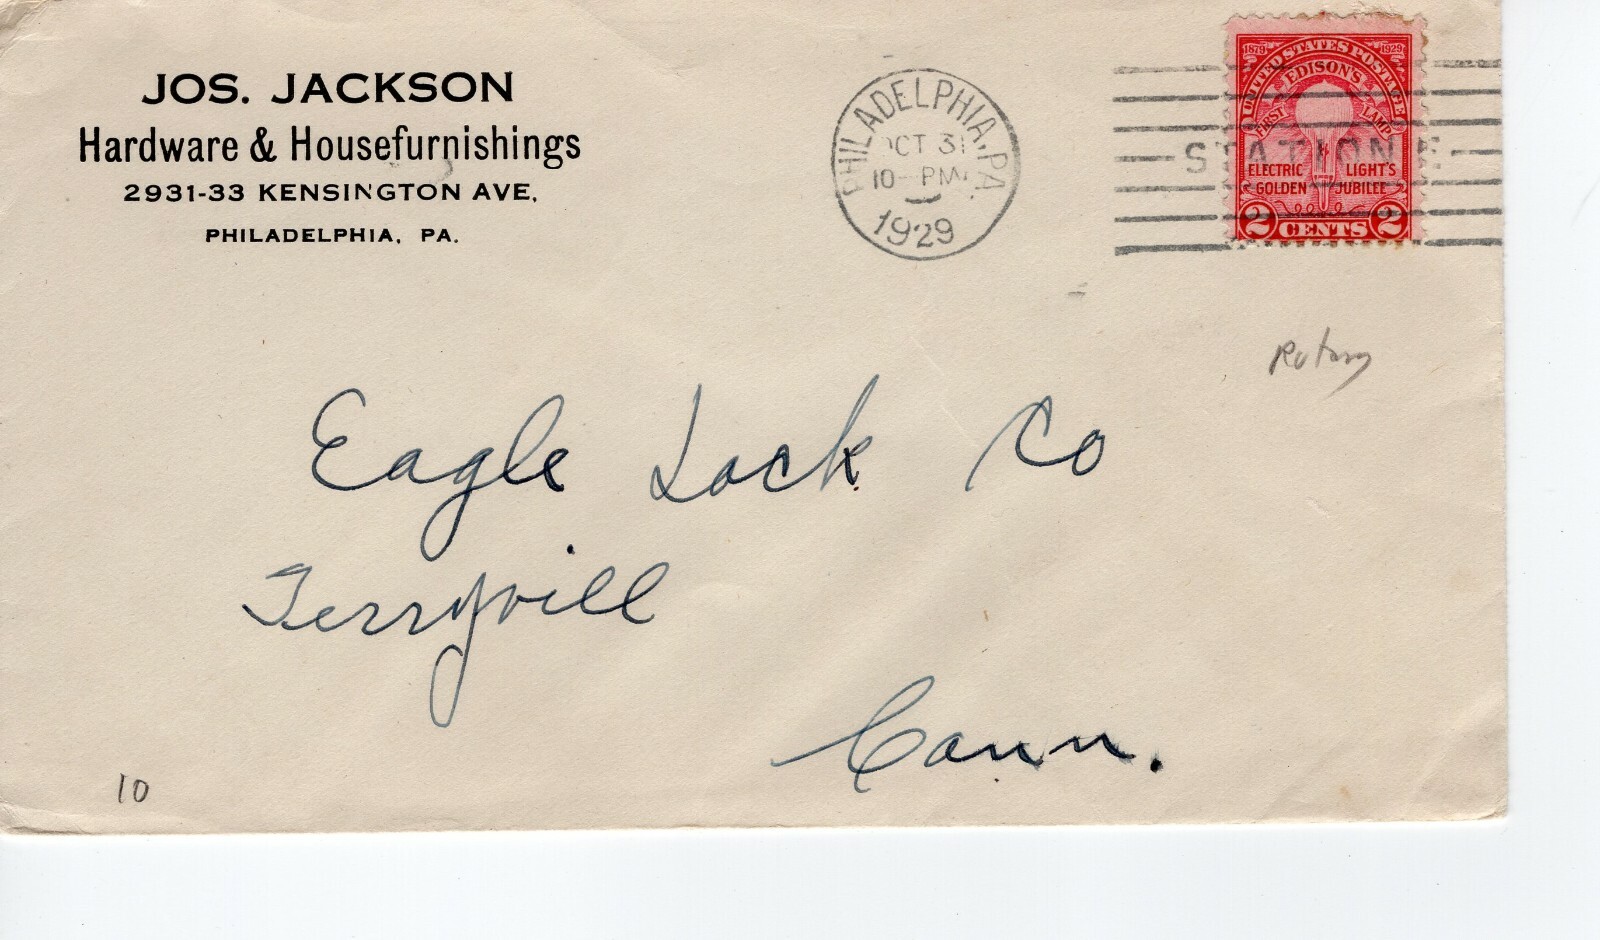 JOS. JACKSON
Hardware & Housefurnishings
2931-33 KENSINGTON AVE.
PHILADELPHIA, PA.
PHILADELPHIA, PA.
OCT 31
10-PM
1929
STATION E
1879 1929
UNITED STATES POSTAGE
EDISON'S
FIRST LAMP
ELECTRIC LIGHT'S
GOLDEN JUBILEE
2 CENTS 2
Rotary
Eagle Lock Co
Terryvill
Conn.
10